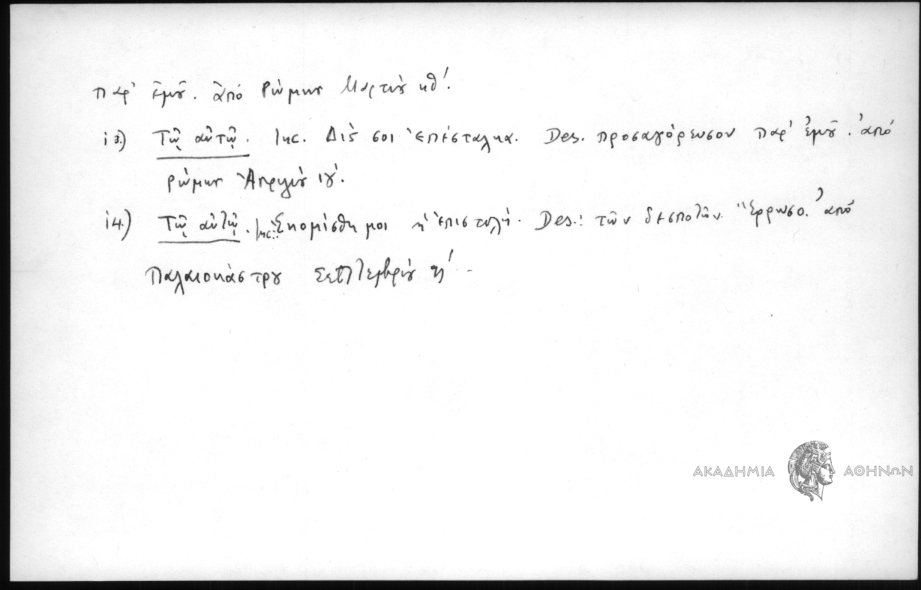 παρ' ἐμοῦ. ἀπὸ Ρώμης Μαρτίου κθ'.
13.) Τῷ αὐτῷ. Inc. Δίς σοι ἐπέσταλκα. Des. προσαγόρευσον παρ' ἐμοῦ. ἀπὸ
ρώμης Ἀπριλίου ιγ'.
14.) Τῷ αὐτῷ. Inc.: Ἐκομίσθη μοι ἡ ἐπιστολή. Des.: τῶν δεσποτῶν. Ἔρρωσο. ἀπὸ
Παλαιοκάστρου Σεπτεμβρίου η'
ΑΚΑΔΗΜΙΑ ΑΘΗΝΩΝ